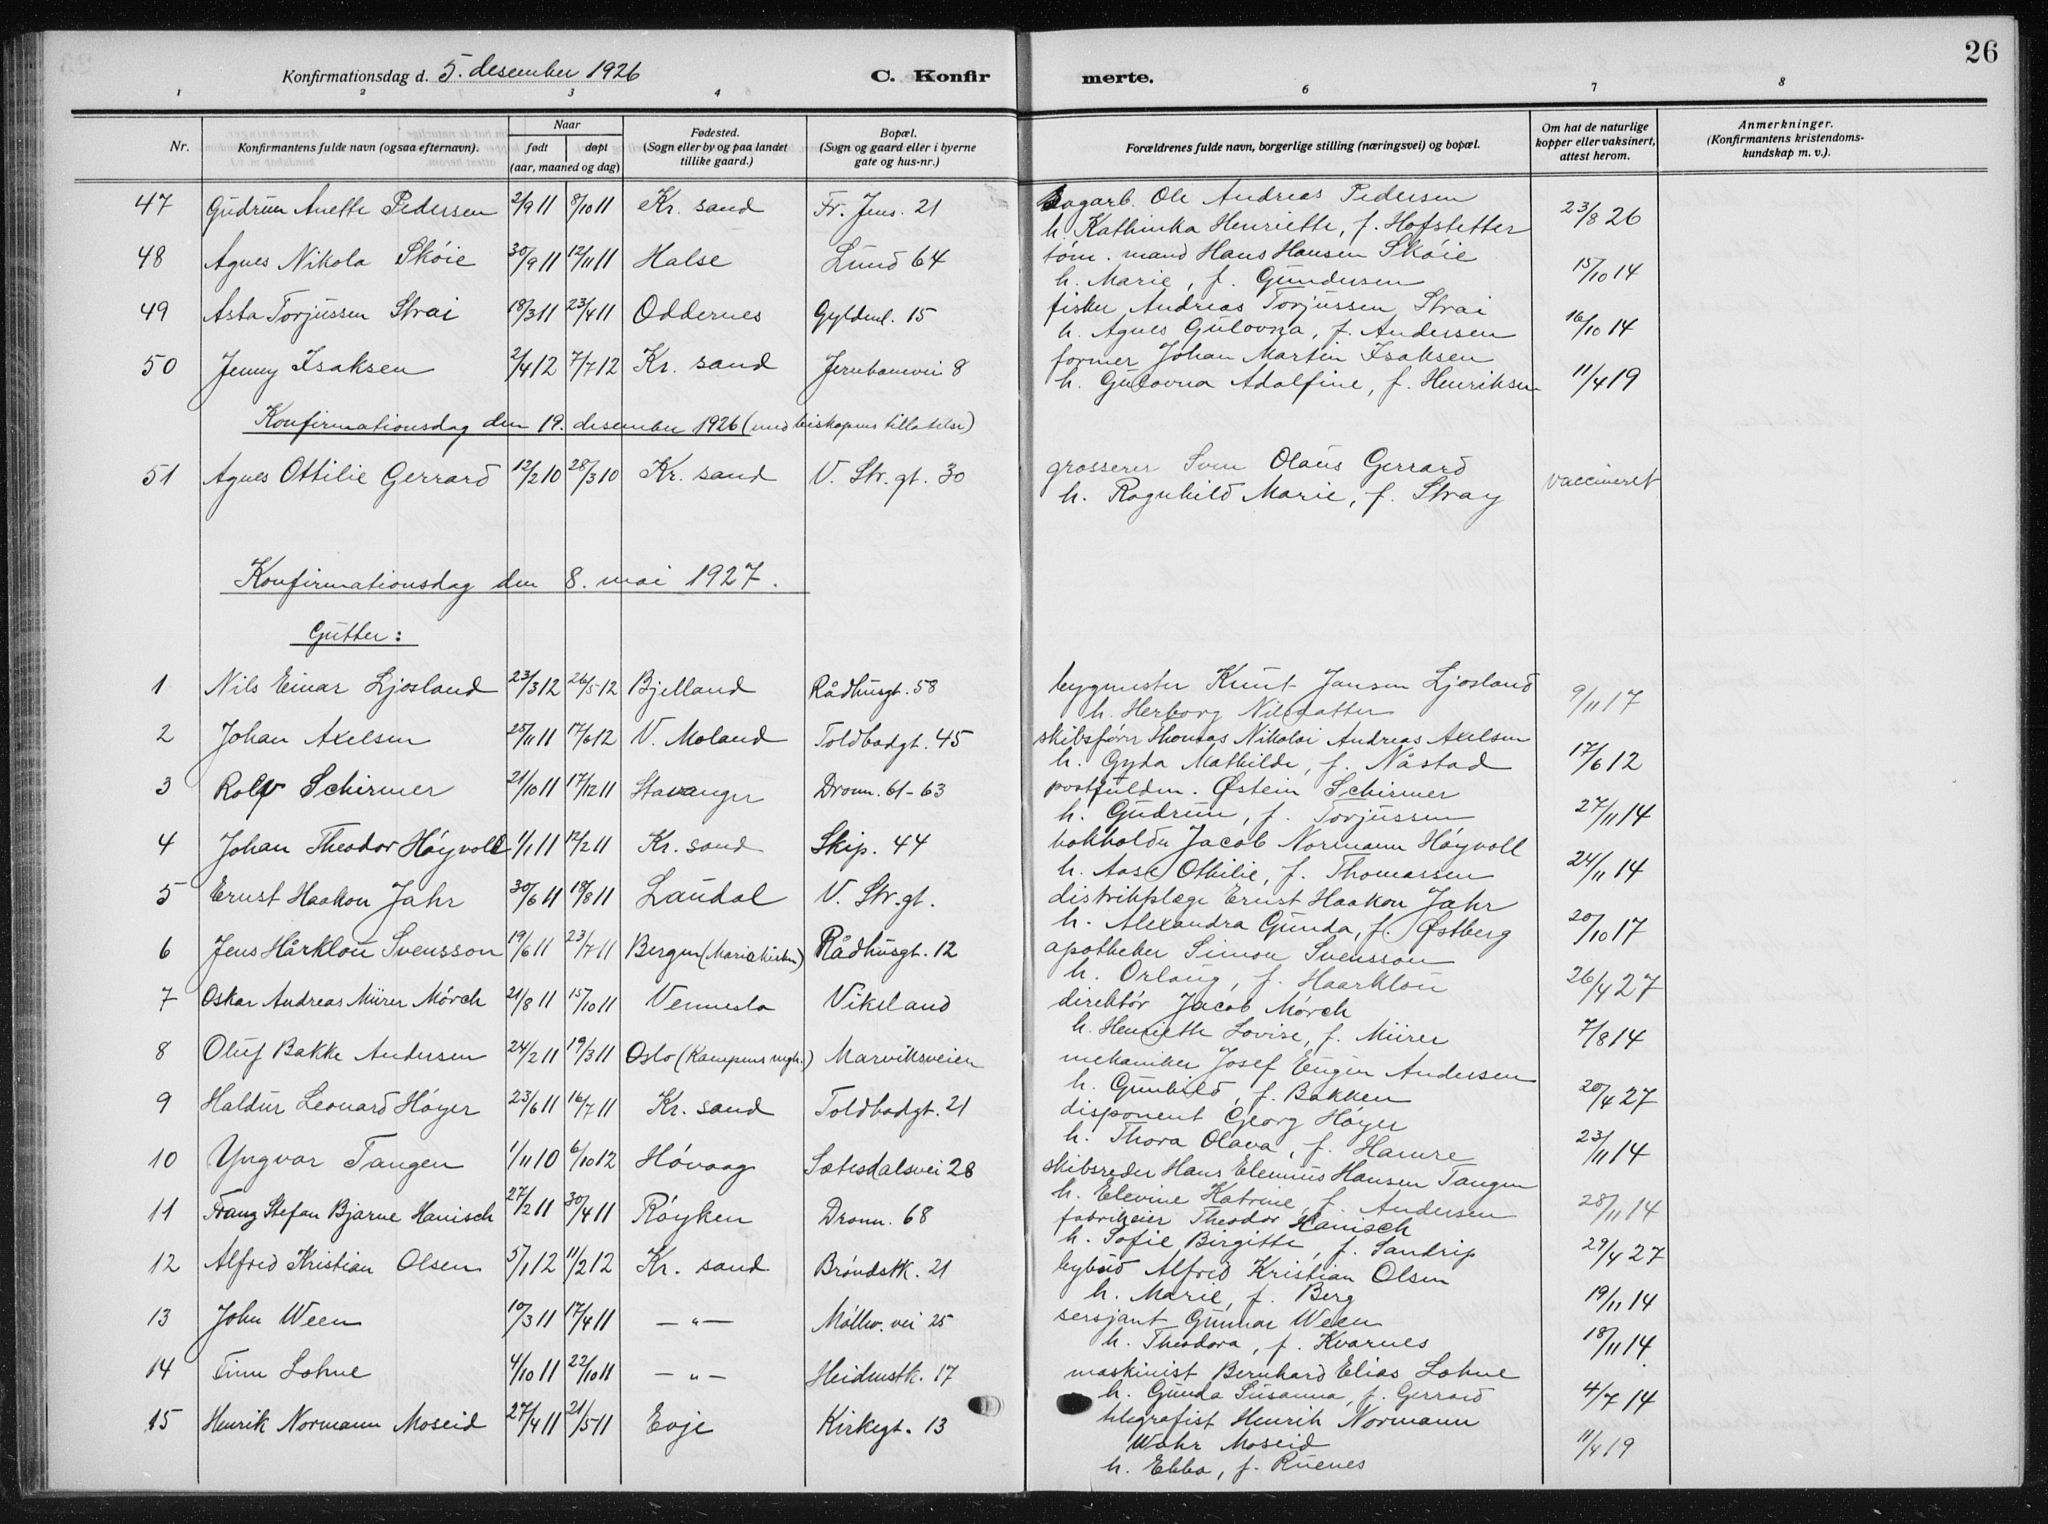 26
Konfirmationsdag d. 5. desember 1926 C. Konfirmerte.
1 2 3 4 6 7 8
Nr. Konfirmantens fulde navn (ogsaa efternavn). Naar født døpt (aar, maaned og dag) Fødested. (Sogn eller by og paa landet tillike gaard.) Bopæl. (Sogn og gaard eller i byerne gate og hus-nr.) Forældrenes fulde navn, borgerlige stilling (næringsvei) og bopæl. Om hat de naturlige kopper eller vaksinert, attest herom. Anmerkninger. (Konfirmantens kristendomskundskap m. v.).
47 Gudrun Anette Pedersen 2/9 11 8/10 11 Kr. sand Fr. Jens. 21 Ole Andreas Pedersen 23/8 26
h. Kathinka Henriette, f. Hofstetter
48 Agnes Nikola Skøie 30/9 11 12/11 11 Halse Lund 64 tøm. mand Hans Hansen Skøie 15/10 14
h. Marie, f. Gundersen
49 Asta Torjussen Strai 18/3 11 23/4 11 Oddernes Gyldenl. 15 fisker Andreas Torjussen Strai 16/10 14
h. Agnes Gulovna, f. Andersen
50 Jenny Isaksen 2/4 12 7/7 12 Kr. sand Jernbanevei 8 former Johan Martin Isaksen 11/4 19
h. Gulovna Adolfine, f. Henriksen
Konfirmationsdag den 19. desember 1926 (med biskopens tillatelse)
51 Agnes Ottilie Gerrard 12/2 10 28/3 10 Kr. sand V. Str. gt. 30 grosserer Sven Olaus Gerrard vaccineret
h. Ragnhild Marie, f. Stray
Konfirmationsdag den 8. mai 1927.
Gutter:
1 Nils Einar Ljosland 23/3 12 26/5 12 Bjelland Rådhusgt. 58 bygmester Knut Jansen Ljosland 9/11 17
h. Herborg Nilsdatter
2 Johan Axelsen 25/11 11 17/6 12 V. Moland Toldbodgt. 45 skibsfører Thomas Nikolai Andreas Axelsen 17/6 12
h. Gyda Mathilde, f. Nåstad
3 Rolf Schirmer 21/10 11 17/12 11 Stavanger Dronn. 61-63 postfuldm. Østein Schirmer 27/11 14
h. Gudrun, f. Torjussen
4 Johan Theodor Høyvold 1/1 11 12/2 11 Kr. sand Skip. 44 bokholder Jacob Normann Høyvoll 24/11 14
h. Aase Othilie, f. Thomassen
5 Ernst Haakon Jahr 30/6 11 18/8 11 Laudal V. Str. gt. distriktslæge Ernst Haakon Jahr 20/10 17
h. Alexandra Gunda, f. Østberg
6 Jens Hårklou Svensson 19/6 11 23/7 11 Bergen (Mariekirken) Rådhusgt. 12 apotheker Simon Svensson 26/4 27
h. Orlaug, f. Haarklou
7 Oskar Andreas Mürer Mørch 21/8 11 15/10 11 Vennesla Vikeland direktør Jacob Mørch 7/8 14
h. Henriette Lovise, f. Mürer
8 Oluf Bakke Andersen 24/2 11 19/3 11 Oslo (Kampens mgh.) Marviksveien mekaniker Josef Eugen Andersen 20/4 27
h. Gunhild, f. Bakken
9 Haldur Leonard Høyer 23/6 11 16/7 11 Kr. sand Toldbodgt. 21 disponent Georg Høyer 23/11 14
h. Thora Olava, f. Hamre
10 Yngvar Tangen 1/11 10 6/10 12 Høvaag Sætesdalsvei 28 skibsreder Hans Elenius Hansen Tangen 28/11 14
h. Elevine Katrine, f. Andersen
11 Franz Stefan Bjarne Hanisch 27/2 11 30/4 11 Røyken Dronn. 68 fabrikeier Theodor Hanisch 29/4 27
h. Sofie Birgitte, f. Sandrip
12 Alfred Kristian Olsen 5/1 12 11/2 12 Kr. sand Brøndstk. 21 bybud Alfred Kristian Olsen 19/11 14
h. Marie, f. Berg
13 John Ween 10/3 11 17/4 11 — „ — Møllev. vei 25 sersjant Gunnar Ween 18/11 14.
h. Theodora, f. Kvarnes
14 Finn Lohne 4/10 11 22/10 11 — „ — Heidmstk. 17 maskinist Bernhard Elias Lohne 4/7 14
h. Gunda Susanna, f. Gerrard
15 Henrik Normann Moseid 27/4 11 21/5 11 Evje Kirkegt. 13 telegrafist Henrik Normann 11/4 19
Wahr Moseid
h. Ebba, f. Ruenes